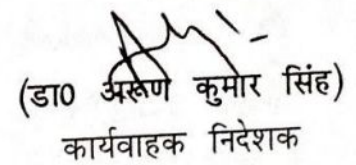 (डा0 अरूण कुमार सिंह)
कार्यवाहक निदेशक